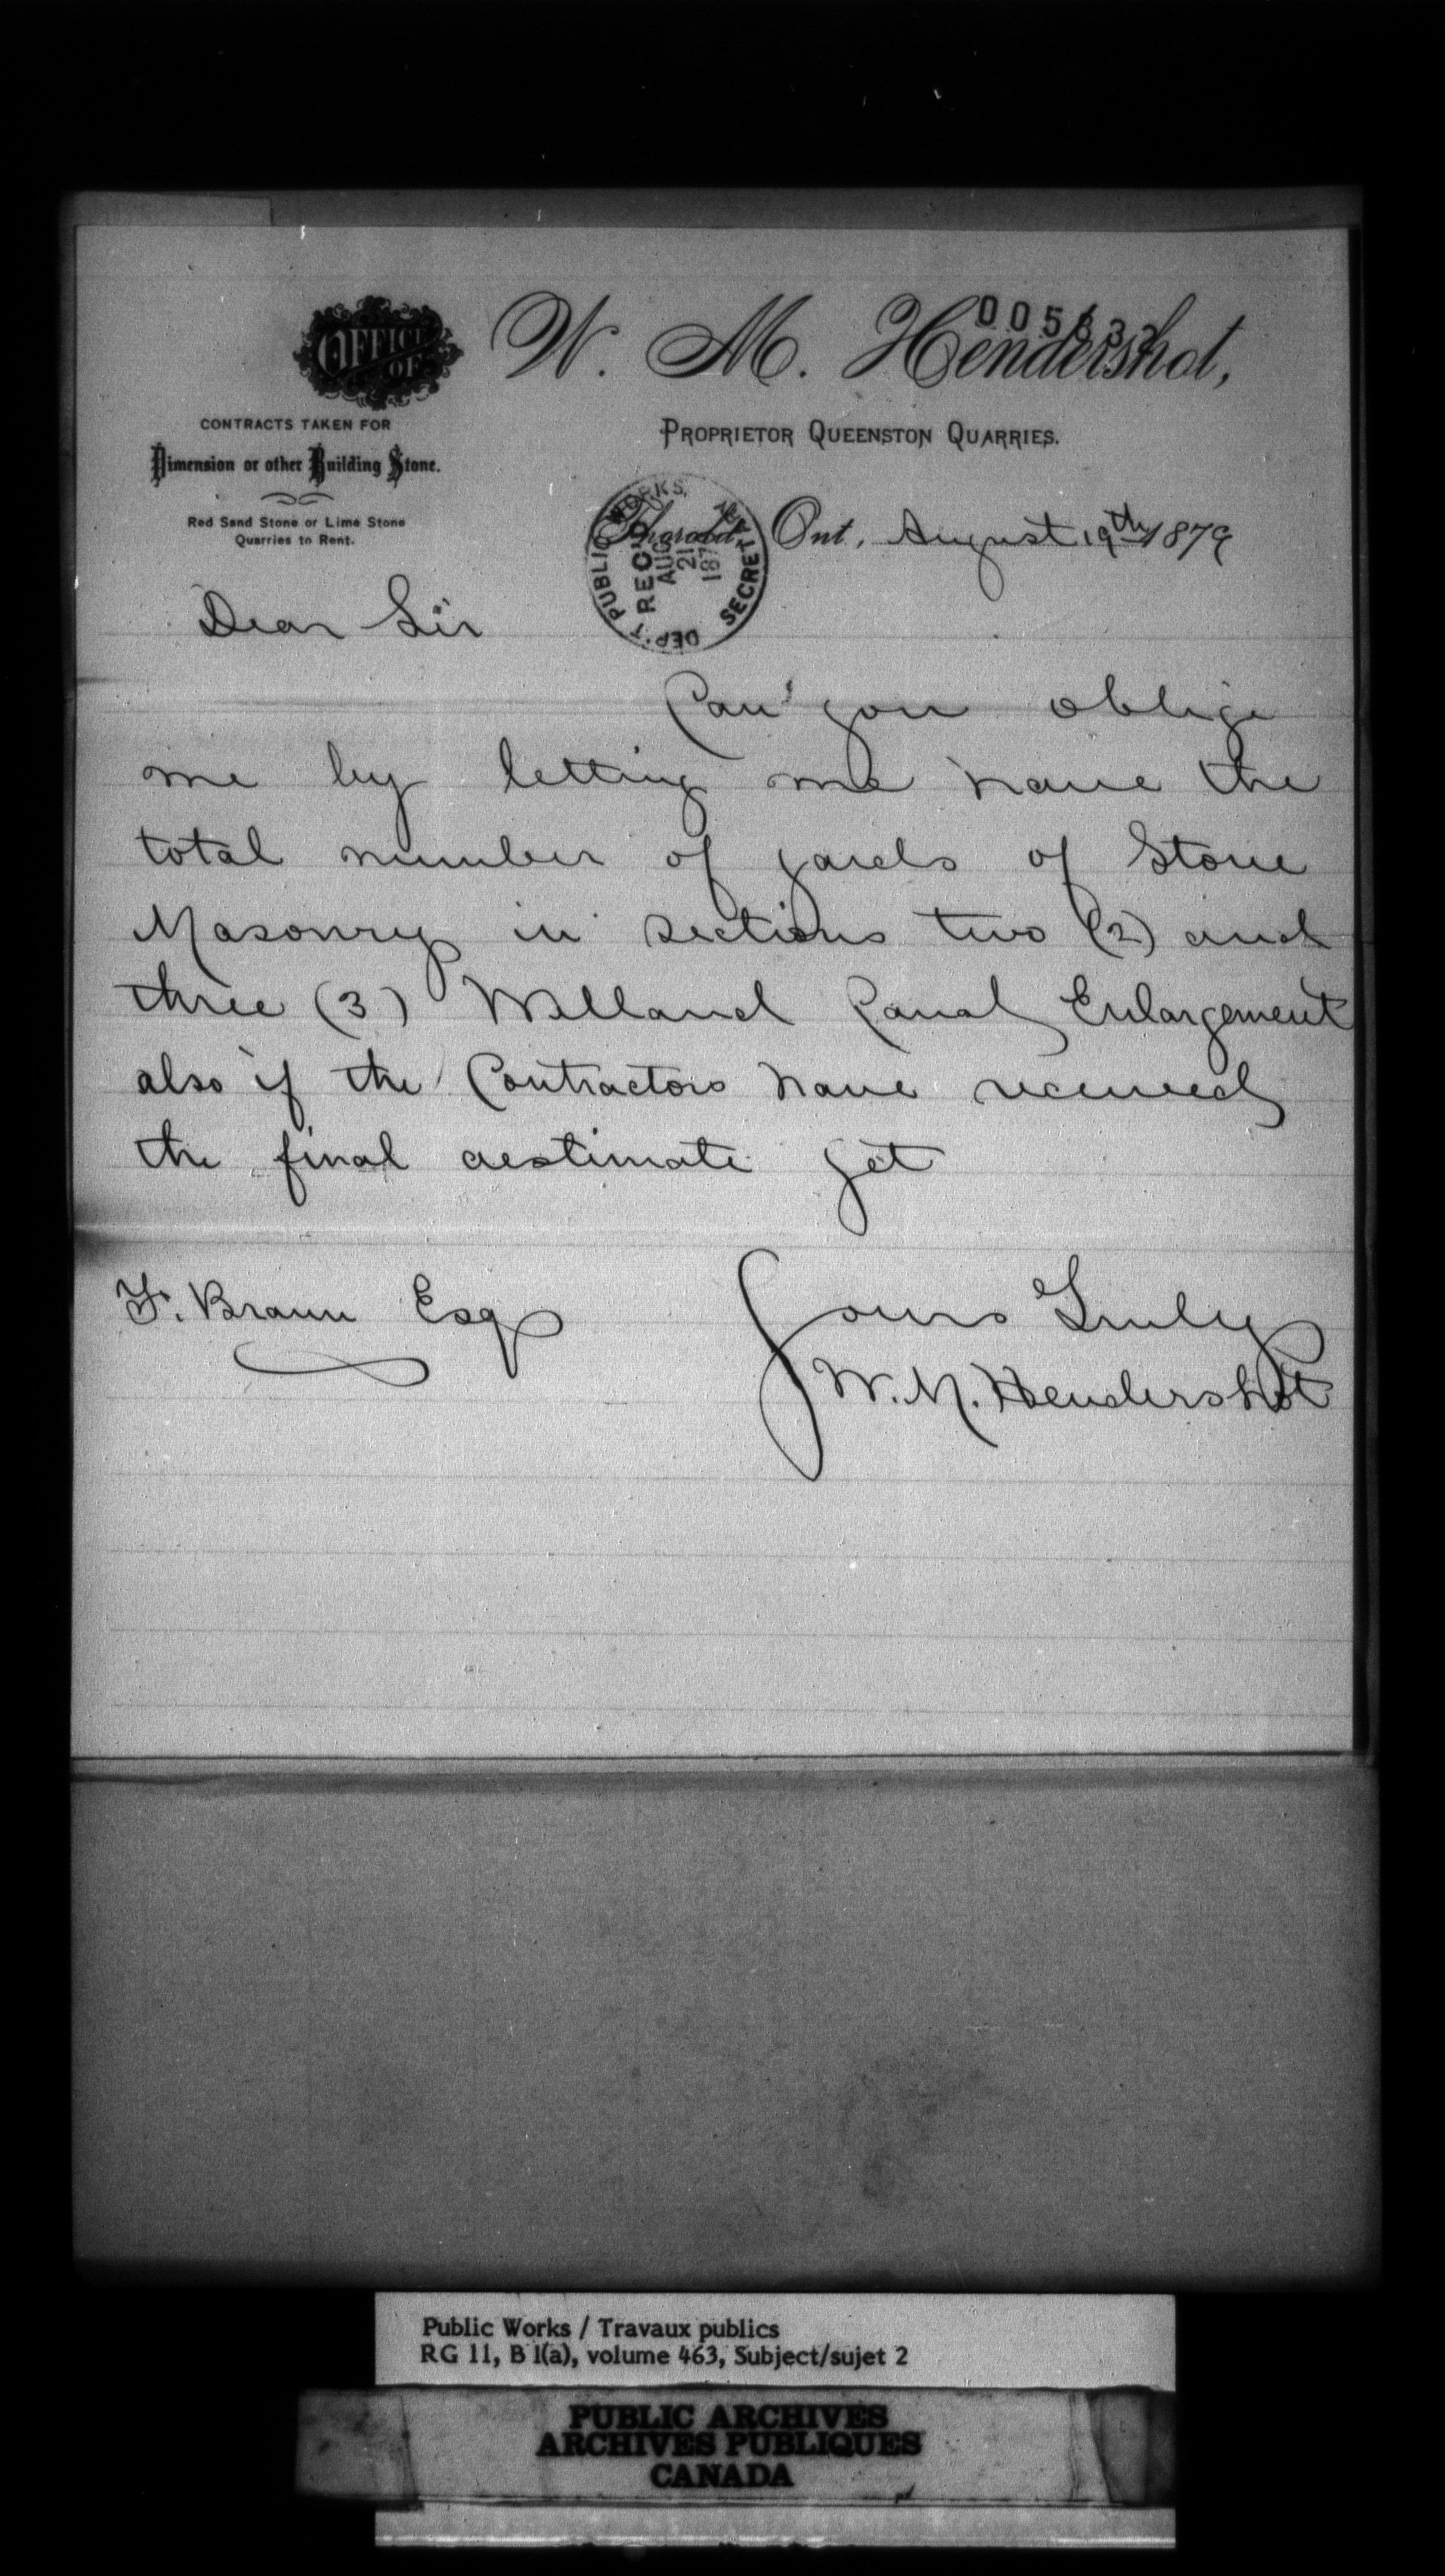 OFFICE OF
W. M. Hendershot,
CONTRACTS TAKEN FOR
Dimension or other Building Stone.
Red Sand Stone or Lime Stone
Quarries to Rent.
PROPRIETOR QUEENSTON QUARRIES.
DEP'T PUBLIC WORKS, SECRETARY
REC'D
AUG
21
187
Thorold, Ont, August 19th 1879
Dear Sir
Can you oblige
me by letting me have the
total number of yards of Stone
Masonry in sections two (2) and
three (3) Welland Canal Enlargement
also if the Contractors have received
the final aestimate yet
F. Braun Esq
Yours Truly
W. M. Hendershot
Public Works / Travaux publics
RG 11, B 1(a), volume 463, Subject/sujet 2
PUBLIC ARCHIVES
ARCHIVES PUBLIQUES
CANADA